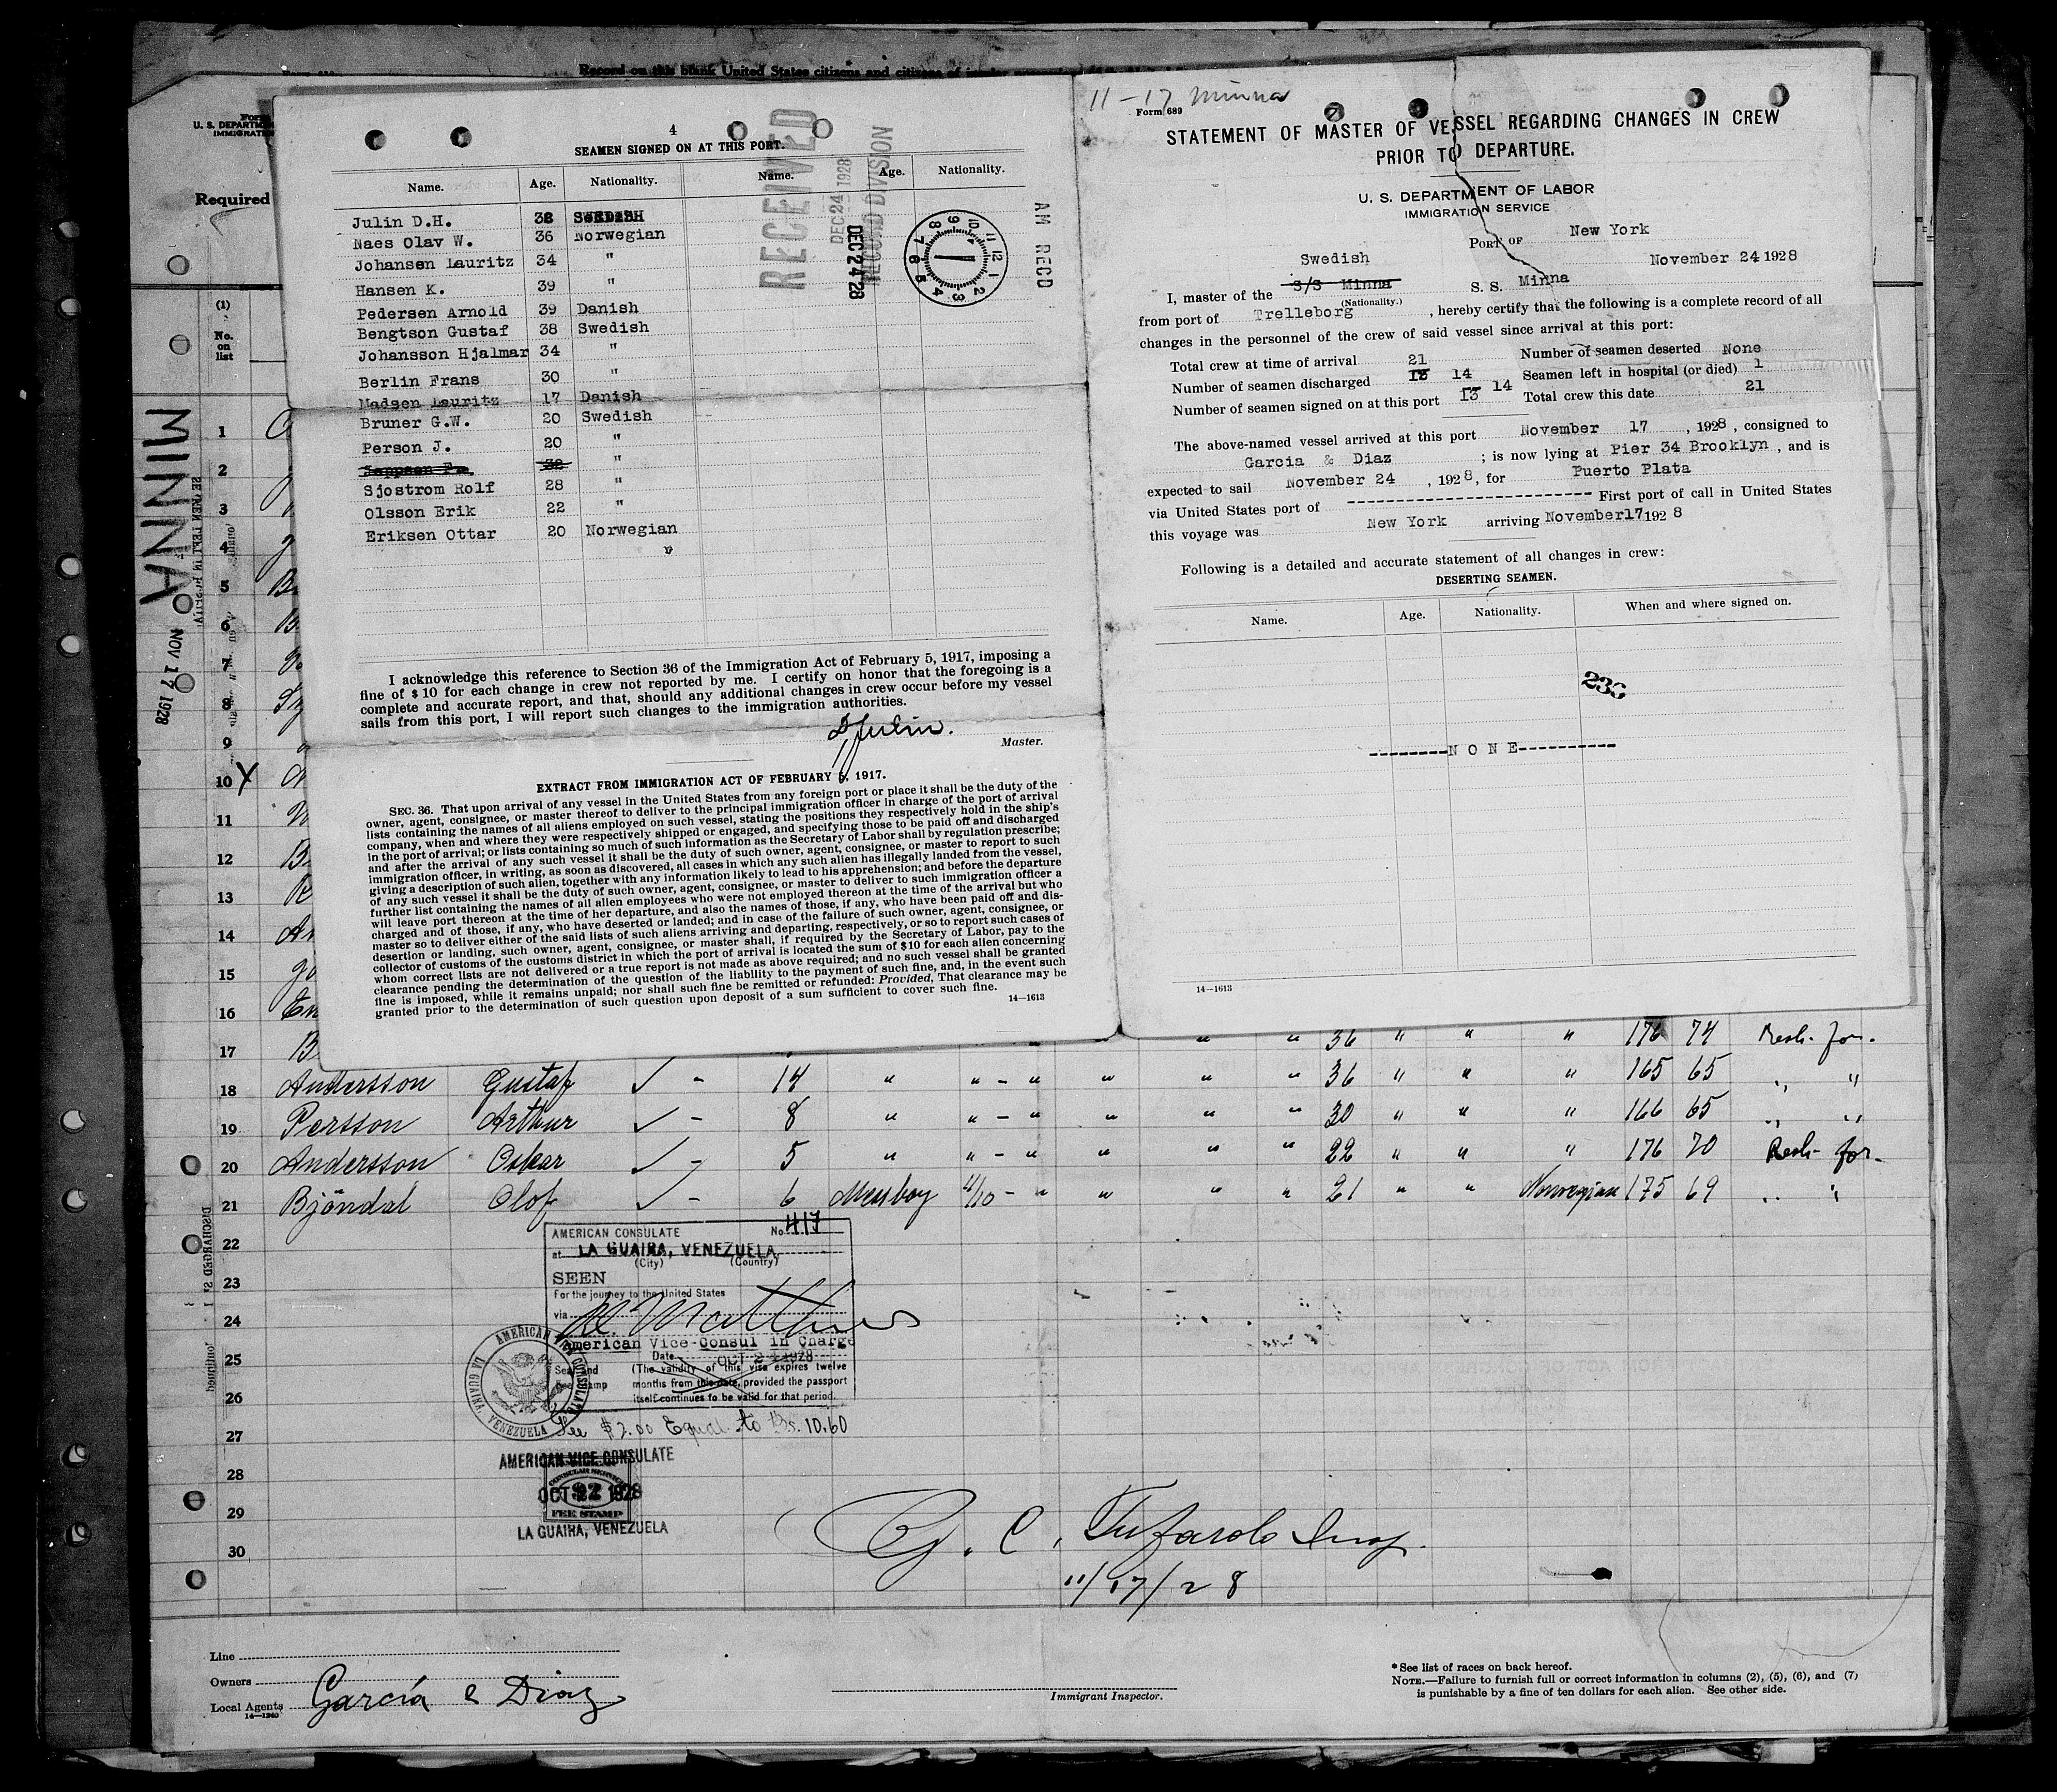 Record on this blank United States citizens and citizens of
U. S. DEPARTM
IMMIGRATI
Required
(1)
No.
on
list
MINNA
NOV 17 1928
4
SEAMEN SIGNED ON AT THIS PORT.
Name. Age. Nationality. Name. Age. Nationality.
Julin D.H. 38 SWEDISH
Naes Olav W. 36 Norwegian
Johansen Lauritz 34 "
Hansen K. 39 "
Pedersen Arnold 39 Danish
Bengtson Gustaf 38 Swedish
Johansson Hjalmar 34 "
Berlin Frans 30 "
Madsen Lauritz 17 Danish
Bruner G.W. 20 Swedish
Person J. 20 "
"
Sjostrom Rolf 28 "
Olsson Erik 22 "
Eriksen Ottar 20 Norwegian
RECEIVED
DEC 24 1928
RECORD DIVISION
DEC 24 28
AM RECD
I acknowledge this reference to Section 36 of the Immigration Act of February 5, 1917, imposing a
fine of $10 for each change in crew not reported by me. I certify on honor that the foregoing is a
complete and accurate report, and that, should any additional changes in crew occur before my vessel
sails from this port, I will report such changes to the immigration authorities.
D Julin.
Master.
EXTRACT FROM IMMIGRATION ACT OF FEBRUARY 5, 1917.
SEC. 36. That upon arrival of any vessel in the United States from any foreign port or place it shall be the duty of the
owner, agent, consignee, or master thereof to deliver to the principal immigration officer in charge of the port of arrival
lists containing the names of all aliens employed on such vessel, stating the positions they respectively hold in the ship's
company, when and where they were respectively shipped or engaged, and specifying those to be paid off and discharged
in the port of arrival; or lists containing so much of such information as the Secretary of Labor shall by regulation prescribe;
and after the arrival of any such vessel it shall be the duty of such owner, agent, consignee, or master to report to such
immigration officer, in writing, as soon as discovered, all cases in which any such alien has illegally landed from the vessel,
giving a description of such alien, together with any information likely to lead to his apprehension; and before the departure
of any such vessel it shall be the duty of such owner, agent, consignee, or master to deliver to such immigration officer a
further list containing the names of all alien employees who were not employed thereon at the time of the arrival but who
will leave port thereon at the time of her departure, and also the names of those, if any, who have been paid off and dis-
charged and of those, if any, who have deserted or landed; and in case of the failure of such owner, agent, consignee, or
master so to deliver either of the said lists of such aliens arriving and departing, respectively, or so to report such cases of
desertion or landing, such owner, agent, consignee, or master shall, if required by the Secretary of Labor, pay to the
collector of customs of the customs district in which the port of arrival is located the sum of $10 for each alien concerning
whom correct lists are not delivered or a true report is not made as above required; and no such vessel shall be granted
clearance pending the determination of the question of the liability to the payment of such fine, and, in the event such
fine is imposed, while it remains unpaid; nor shall such fine be remitted or refunded: Provided, That clearance may be
granted prior to the determination of such question upon deposit of a sum sufficient to cover such fine.
14—1613
11-17 Minna
Form 689
STATEMENT OF MASTER OF VESSEL REGARDING CHANGES IN CREW
PRIOR TO DEPARTURE.
U. S. DEPARTMENT OF LABOR
IMMIGRATION SERVICE
PORT OF New York
November 24 1928
Swedish
I, master of the S/S Minna S. S. Minna
(Nationality.)
from port of Trelleborg, hereby certify that the following is a complete record of all
changes in the personnel of the crew of said vessel since arrival at this port:
Total crew at time of arrival 21 Number of seamen deserted None
Number of seamen discharged 13 14 Seamen left in hospital (or died) 1
Number of seamen signed on at this port 13 14 Total crew this date 21
The above-named vessel arrived at this port November 17, 1928, consigned to
Garcia & Diaz; is now lying at Pier 34 Brooklyn, and is
expected to sail November 24, 1928, for Puerto Plata
via United States port of ---------------- First port of call in United States
this voyage was New York arriving November 17 1928
Following is a detailed and accurate statement of all changes in crew:
DESERTING SEAMEN.
Name. Age. Nationality. When and where signed on.
--------N O N E----------
14—1613
1
2
3
4
5
6
7
8
9
10 X
11
12
13
14
15
16
17 36 " " " 176 74
18 Andersson Gustaf ✓ - 14 " " - " " " " 36 " " " 165 65 " "
19 Persson Arthur ✓ - 8 " " - " " " " 30 " " " 166 65 " "
20 Andersson Oskar ✓ - 5 " " - " " " " 22 " " " 176 70
21 Bjöndal Olof ✓ - 6 Messboy 4/10 - " " " " 21 " " Norwegian 175 69 " "
22
23
24
25
26
27
28
29
30
AMERICAN CONSULATE No. 417
at LA GUAIRA, VENEZUELA
(City) (Country)
SEEN
For the journey to the United States
via
American Vice-Consul in Charge
Date OCT 24 1928
(The validity of this visa expires twelve
months from this date, provided the passport
itself continues to be valid for that period.
AMERICAN VICE CONSULATE LA GUAIRA, VENEZUELA
Fee $2.00 Equal to Bs. 10.60
AMERICAN VICE CONSULATE
CONSULAR SERVICE
OCT 22 1928
FEE STAMP
LA GUAIRA, VENEZUELA
11/17/28
Line
Owners
Local Agents García e Diaz
14—1240
Immigrant Inspector.
* See list of races on back hereof.
NOTE.—Failure to furnish full or correct information in columns (2), (5), (6), and (7)
is punishable by a fine of ten dollars for each alien. See other side.